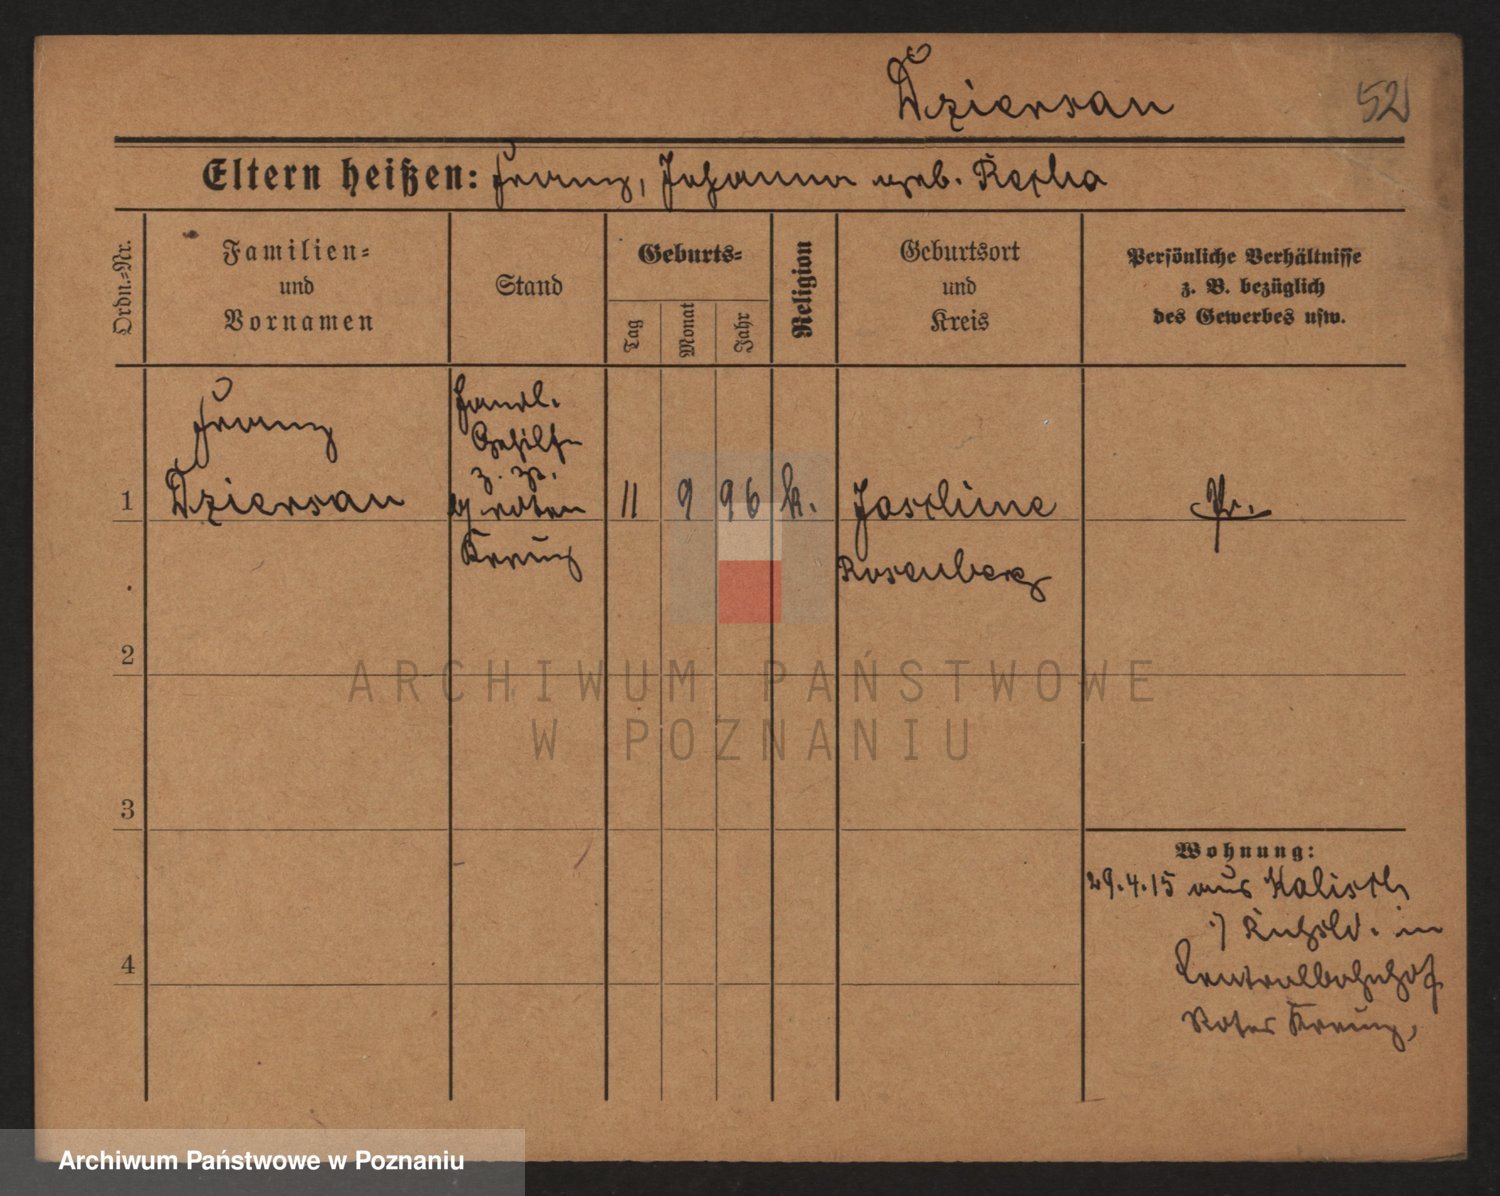 Dziersan
52
Eltern heißen: Franz, Johanna geb. Reska
Ordn.=Nr.
Familien=
und
Vornamen
Stand
Geburts=
Tag
Monat
Jahr
Religion
Geburtsort
und
Kreis
Persönliche Verhältnisse
z. B. bezüglich
des Gewerbes usw.
1
Franz
Dziersan
Handl.
Gehilfe
z. Zt.
roten
Kreuz
11
9
96
k.
Rosenberg
Pr.
2
3
4
Wohnung:
29.4.15 aus Kalisch
in
Zentralbahnhof
Rotes Kreuz,
ARCHIWUM PAŃSTWOWE
W POZNANIU
Archiwum Państwowe w Poznaniu